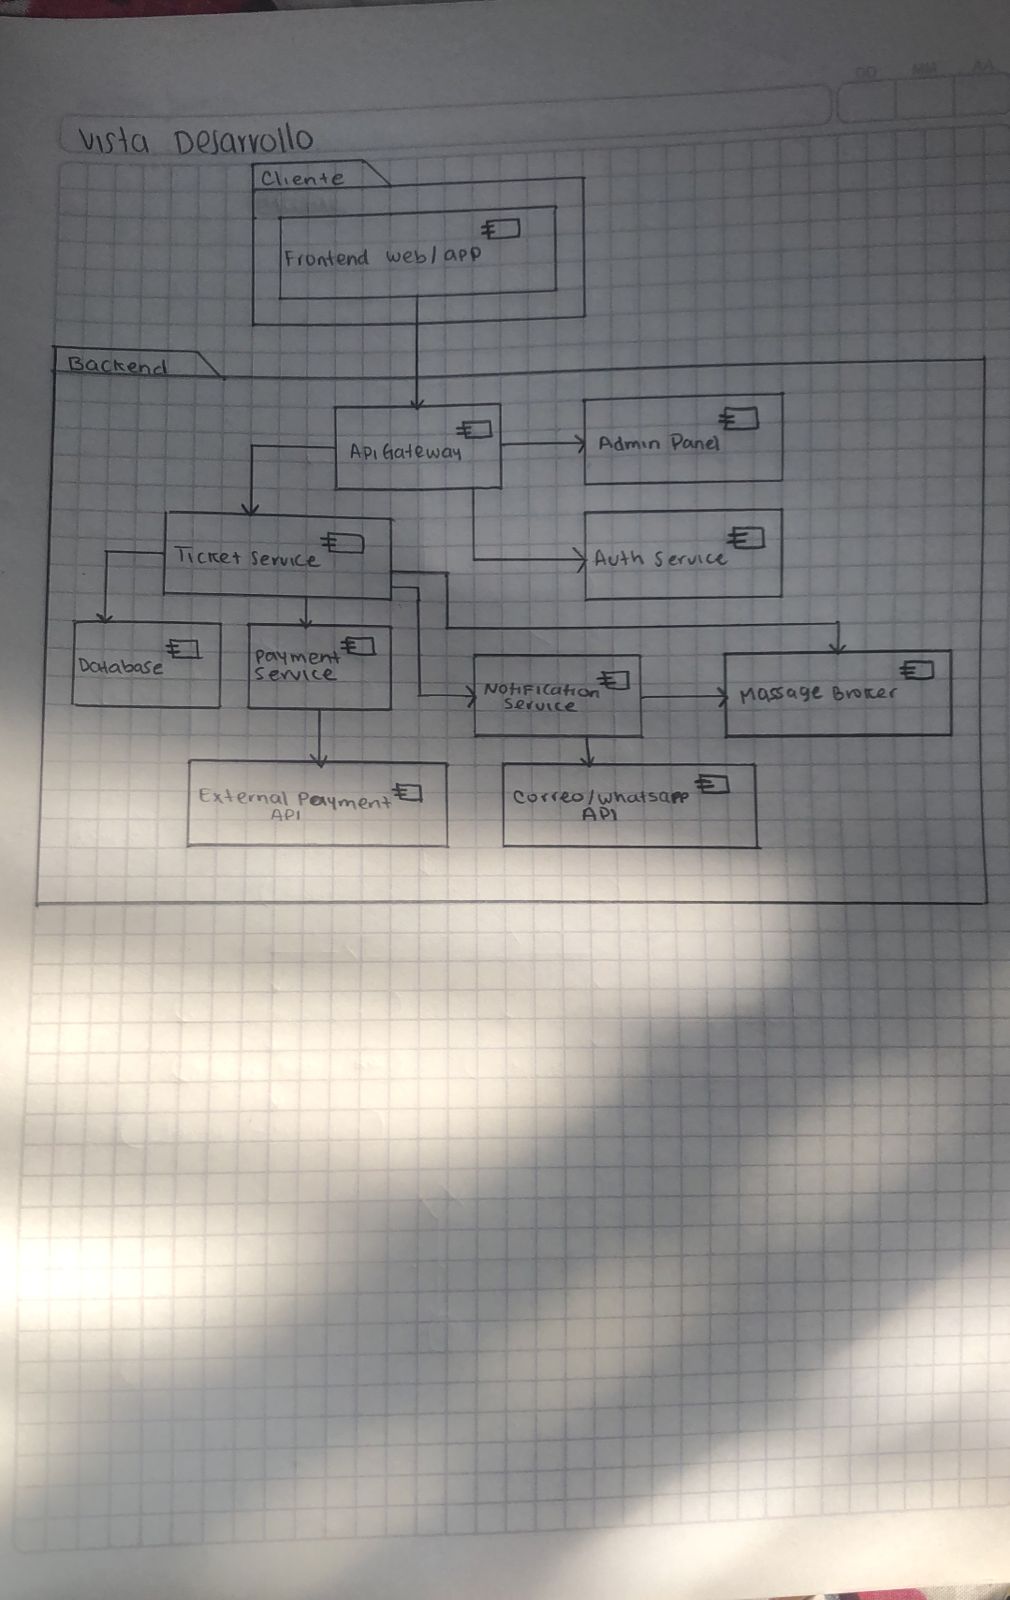 Vista Desarrollo
Cliente
Frontend web/app
Backend
Api Gateway
Admin Panel
Ticket Service
Auth Service
Database
Payment
Service
Notification
Service
Massage Broker
External Payment
API
Correo/whatsapp
API